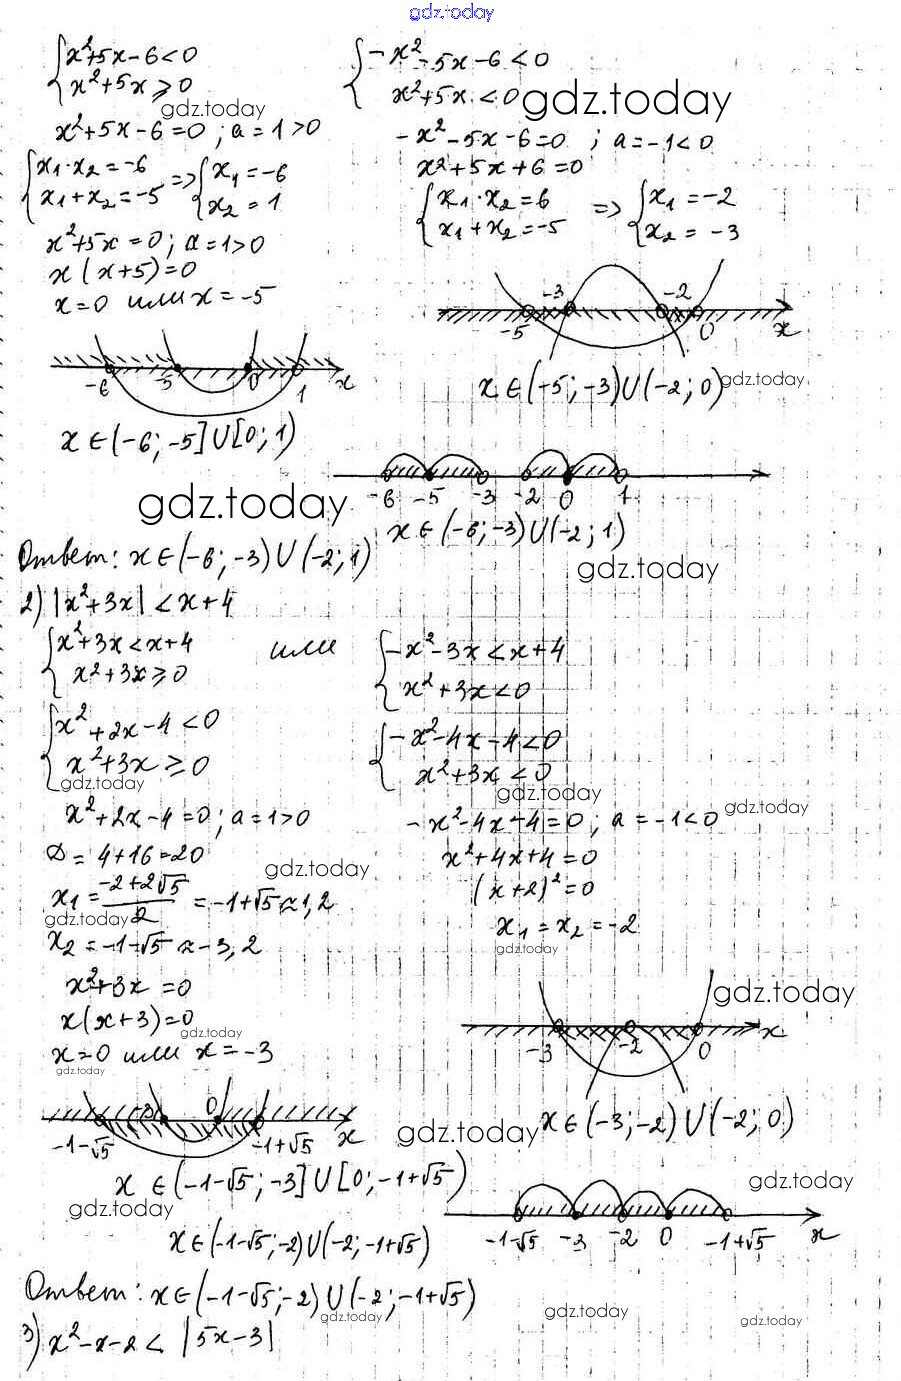 gdz.today
{x²+5x-6<0
x²+5x⩾0
x²+5x-6=0; a=1>0
{x₁·x₂=-6
x₁+x₂=-5 => {x₁=-6
x₂=1
x²+5x=0; a=1>0
x(x+5)=0
x=0 или x=-5
-6 -5 0 1 x
x∈(-6;-5]U[0;1)
{-x²-5x-6<0
x²+5x<0
gdz.today
gdz.today
-x²-5x-6=0; a=-1<0
x²+5x+6=0
{x₁·x₂=6
x₁+x₂=-5 => {x₁=-2
x₂=-3
-5 -3 -2 0 x
x∈(-5;-3)U(-2;0)
gdz.today
-6 -5 -3 -2 0 1
x∈(-6;-3)U(-2;1)
gdz.today
Ответ: x∈(-6;-3)U(-2;1)
gdz.today
2) |x²+3x|<x+4
{x²+3x<x+4
x²+3x⩾0
или
{-x²-3x<x+4
x²+3x<0
{x²+2x-4<0
x²+3x⩾0
gdz.today
x²+2x-4=0; a=1>0
D=4+16=20
gdz.today
x₁=(-2+2√5)/2=-1+√5≈1,2
gdz.today
x₂=-1-√5≈-3,2
x²+3x=0
x(x+3)=0
gdz.today
x=0 или x=-3
gdz.today
-1-√5 -3 0 -1+√5 x
x∈(-1-√5;-3]U[0;-1+√5)
gdz.today
{-x²-4x-4<0
x²+3x<0
gdz.today
gdz.today
-x²-4x-4=0; a=-1<0
x²+4x+4=0
(x+2)²=0
x₁=x₂=-2
gdz.today
gdz.today
-3 -2 0 x
gdz.today
x∈(-3;-2)U(-2;0)
gdz.today
-1-√5 -3 -2 0 -1+√5 x
x∈(-1-√5;-2)U(-2;-1+√5)
Ответ: x∈(-1-√5;-2)U(-2;-1+√5)
gdz.today
gdz.today
gdz.today
3) x²-x-2<|5x-3|